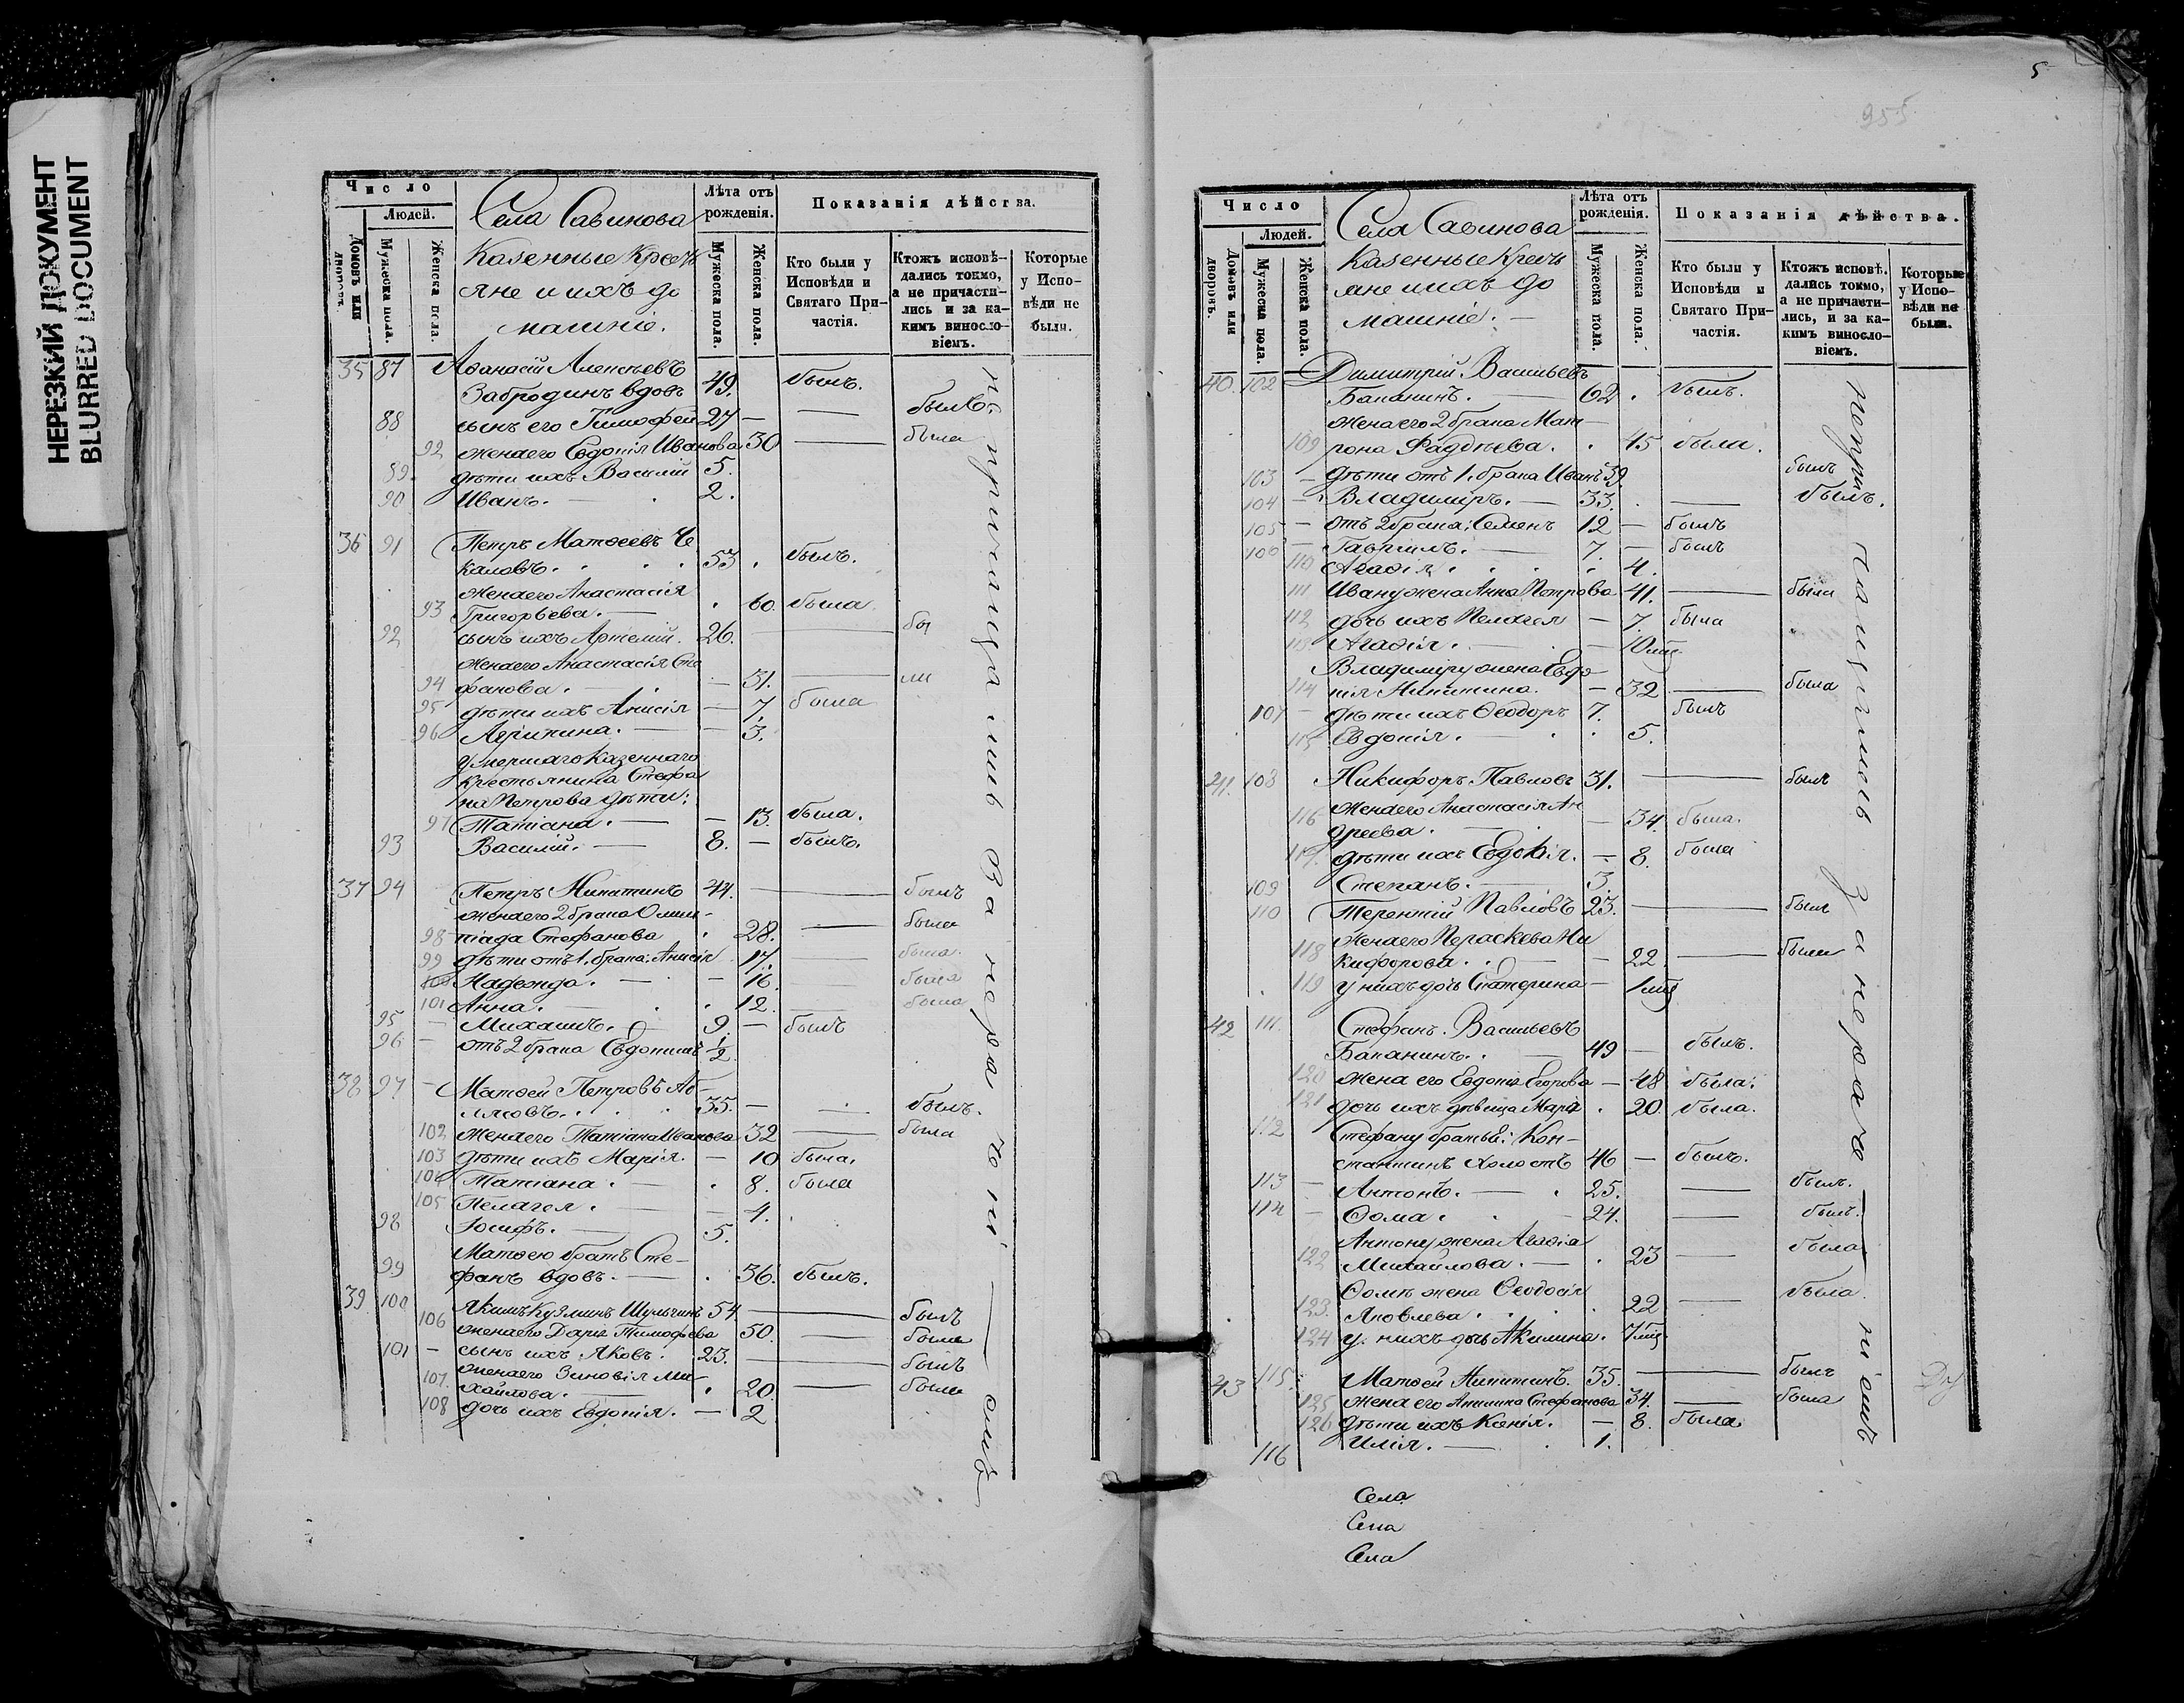 НЕРЕЗКИЙ ДОКУМЕНТ
BLURRED DOCUMENT
Число
Людей.
Домовъ или дворовъ.
Мужеска пола.
Женска пола.
Села Савинова
Казенные Кресть
яне и ихъ до
машніе.
Лѣта отъ рожденія.
Мужеска пола.
Женска пола.
Показанія дѣйства.
Кто были у Исповѣди и Святаго Причастія.
Ктожъ исповѣдались токмо, а не причастились и за какимъ винословіемъ.
Которые у Исповѣди не были.
35 87 Аѳанасій Алексѣевъ
Забродинъ вдовъ 49. былъ.
88 сынъ его Тимофей 27 — — былъ.
92 жена его Евдокія Иванова 30 — была
89. дѣти ихъ Василій 5.
90 Иванъ. — 2.
36 91 Петръ Матѳеевъ Че
каловъ. 53. былъ.
жена его Анастасія
93 Григорьева. — 60. была
92 сынъ ихъ Артемій. 26. — бы
жена его Анастасія Сте
94 фанова. — 31. — ли
95 дѣти ихъ Анисія — 7. была
96 Агрипина. — 3.
умершаго казеннаго
крестьянина Стефа
на Петрова дѣти:
97 Татіана. — — 13. была.
93 Василій. — 8. — былъ.
37 94 Петръ Никитинъ 44. — былъ
жена его 2 брака Олим-
98 піада Стефанова 28. — была
99 дѣти отъ 1. брака: Анисія 17. — была.
100 Надежда. — 16. — была
101 Анна. 12. — была
95 — Михаилъ. 9. — былъ
96 — отъ 2 брака Евдокимъ 1/2
38 97 — Матѳей Петровъ Аб-
лямовъ. 35. — — былъ.
102 жена его Татіана Иванова 32 — была
103 дѣти ихъ Марія. — 10 была.
104 Татіана. — 8. была
105 Пелагея. — 4.
98 Іосифъ. — 5.
Матѳею братъ Сте-
99 фанъ вдовъ. — 36. былъ.
39 100 Якимъ Кузминъ Шульгинъ 54 — былъ
106 жена его Дарія Тимофѣева 50. — была
101 — сынъ ихъ Яковъ. 23. — былъ
жена его Зиновія Ми-
107. хайлова. — 20. — была
108 дочь ихъ Евдокія. — 2
не причащались за нера
5
955
Число
Людей.
Домовъ или дворовъ.
Мужеска пола.
Женска пола.
Села Савинова
Казенные Кресть
яне и ихъ до
машніе. —
Лѣта отъ рожденія.
Мужеска пола.
Женска пола.
Показанія дѣйства.
Кто были у Исповѣди и Святаго Причастія.
Ктожъ исповѣ. дались токмо, а не причастились, и за какимъ винословіемъ.
Которые у Исповѣди не были.
40. 102 Димитрій Васильевъ
Баканинъ. — 62. былъ.
жена его 2 брака Мат
109 рона Фаддѣева. 45 была.
103 — дѣти отъ 1. брака Иванъ 39 былъ
104 — Владиміръ. — 33. — былъ.
105 — отъ 2 брака: Семенъ 12 — былъ
106 — Гавріилъ. — 7. — былъ
110 Агаѳія. 4.
111 Ивану жена Анна Петрова 41. — была
112 дочь ихъ Пелагея — 7. была
113 Агаѳія. — 10 мц
Владиміру жена Евдо
114 кія Никитина. — 32 — была
107 — дѣти ихъ Ѳеодоръ 7. былъ
115 Евдокія. 5.
41. 108 Никифоръ Павловъ 31. — былъ
жена его Анастасія Ан
116 дреева. — 34. была.
117. дѣти ихъ Евдокія. — 8. была
109 Степанъ. — 3.
110 Терентій Павловъ 23. — былъ
жена его Параскева Ни
118 кифорова. — 22 — была
119 у нихъ дочь Екатерина — 1 мц
42 111. Стефанъ Васильевъ
Баканинъ. — 49 — былъ.
120 жена его Евдокія Егорова — 48 была.
121 дочь ихъ дѣвица Марія. 20 была.
112 Стефану братья: Кон-
стантинъ холостъ 46 — былъ.
113 — Антонъ. — 25. — былъ.
114 — Ѳома. 24. — былъ.
Антону жена Агаѳія
122 Михайлова. — 23 — была
Ѳомѣ жена Ѳеодосія
123. Яковлева. 22 — была.
124 у нихъ дочь Акилина. 7 мц
43 115. Матѳей Никитинъ. 35. — былъ
125 жена его Акилина Стефанова 34. — была
126 дѣти ихъ Ксенія. — 8. была
116 Илія. — 1.
Села
Села
Села